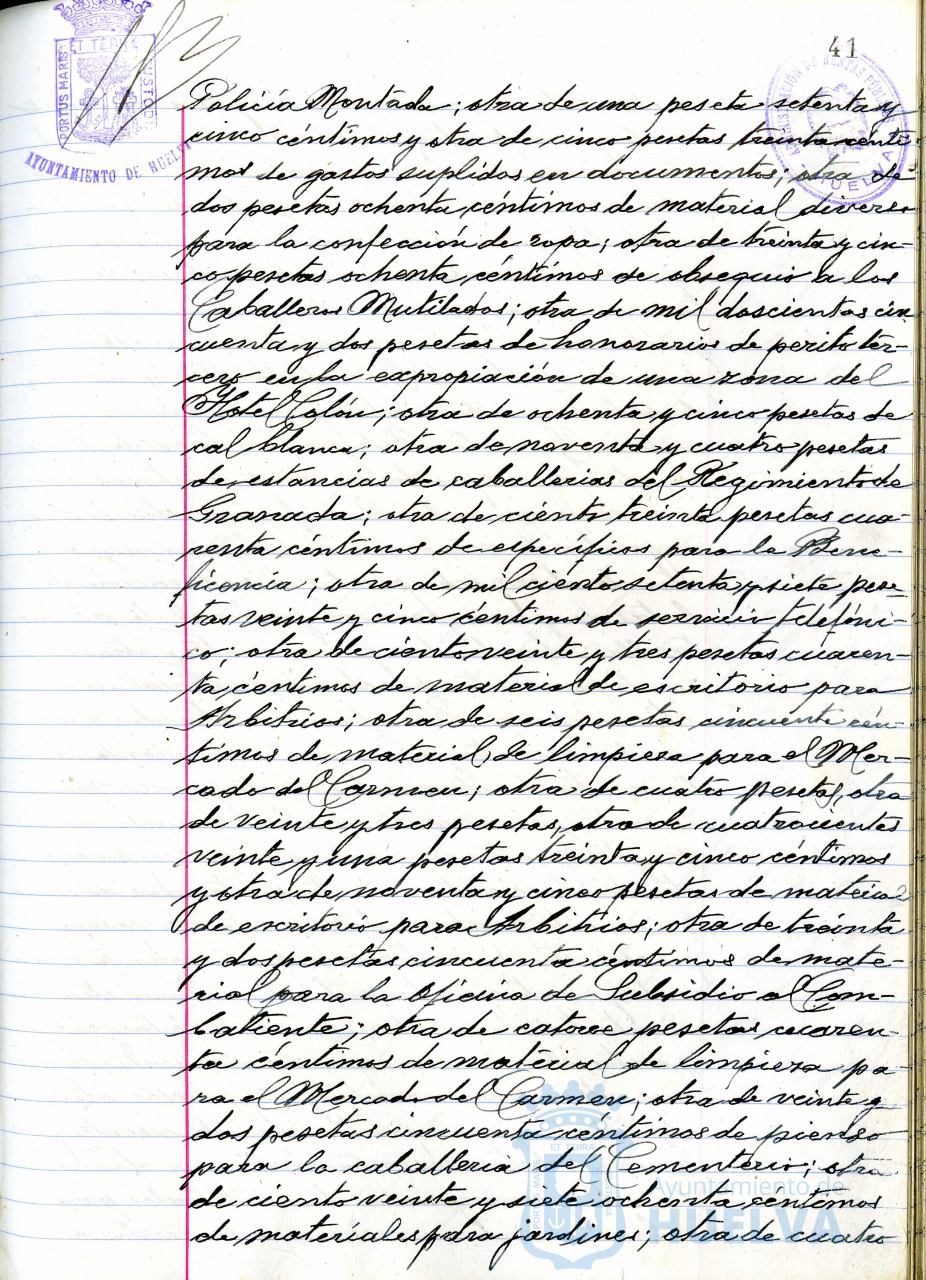 41
PORTUS MARIS ET TERRAE CUSTODIA
AYUNTAMIENTO DE HUELVA
HUELVA
Policía Montada; otra de una peseta setenta y
cinco céntimos y otra de cinco pesetas treinta cénti-
mos de gastos suplidos en documentos; otra de
dos pesetas ochenta céntimos de material diverso
para la confección de ropa; otra de treinta y cin-
co pesetas ochenta céntimos de obsequio a los
Caballeros Mutilados; otra de mil doscientas cin
cuenta y dos pesetas de honorarios de perito ter-
cero en la expropiación de una zona del
Hotel Colón; otra de ochenta y cinco pesetas de
cal blanca; otra de noventa y cuatro pesetas
de estancias de caballerias del Regimiento de
Granada; otra de ciento treinta pesetas cua-
renta céntimos de específicos para la Bene-
ficencia; otra de mil ciento setenta y siete pese-
tas veinte y cinco céntimos de servicio telefóni-
co; otra de ciento veinte y tres pesetas cuaren-
ta céntimos de material de escritorio para
Arbitrios; otra de seis pesetas cincuenta cén-
timos de material de limpieza para el Mer-
cado del Carmen; otra de cuatro pesetas, otra
de veinte y tres pesetas, otra de cuatrocientas
veinte y una pesetas treinta y cinco céntimos
y otra de noventa y cinco pesetas de material
de escritorio para Arbitrios; otra de treinta
y dos pesetas cincuenta céntimos de mate-
rial para la Oficina de Subsidio al Com-
batiente; otra de catorce pesetas cuaren-
ta céntimos de material de limpieza pa-
ra el Mercado del Carmen; otra de veinte y
dos pesetas cincuenta céntimos de pienso
para la caballeria del Cementerio; otra
de ciento veinte y siete ochenta céntimos
de materiales para jardines; otra de cuatro
Ayuntamiento de
HUELVA